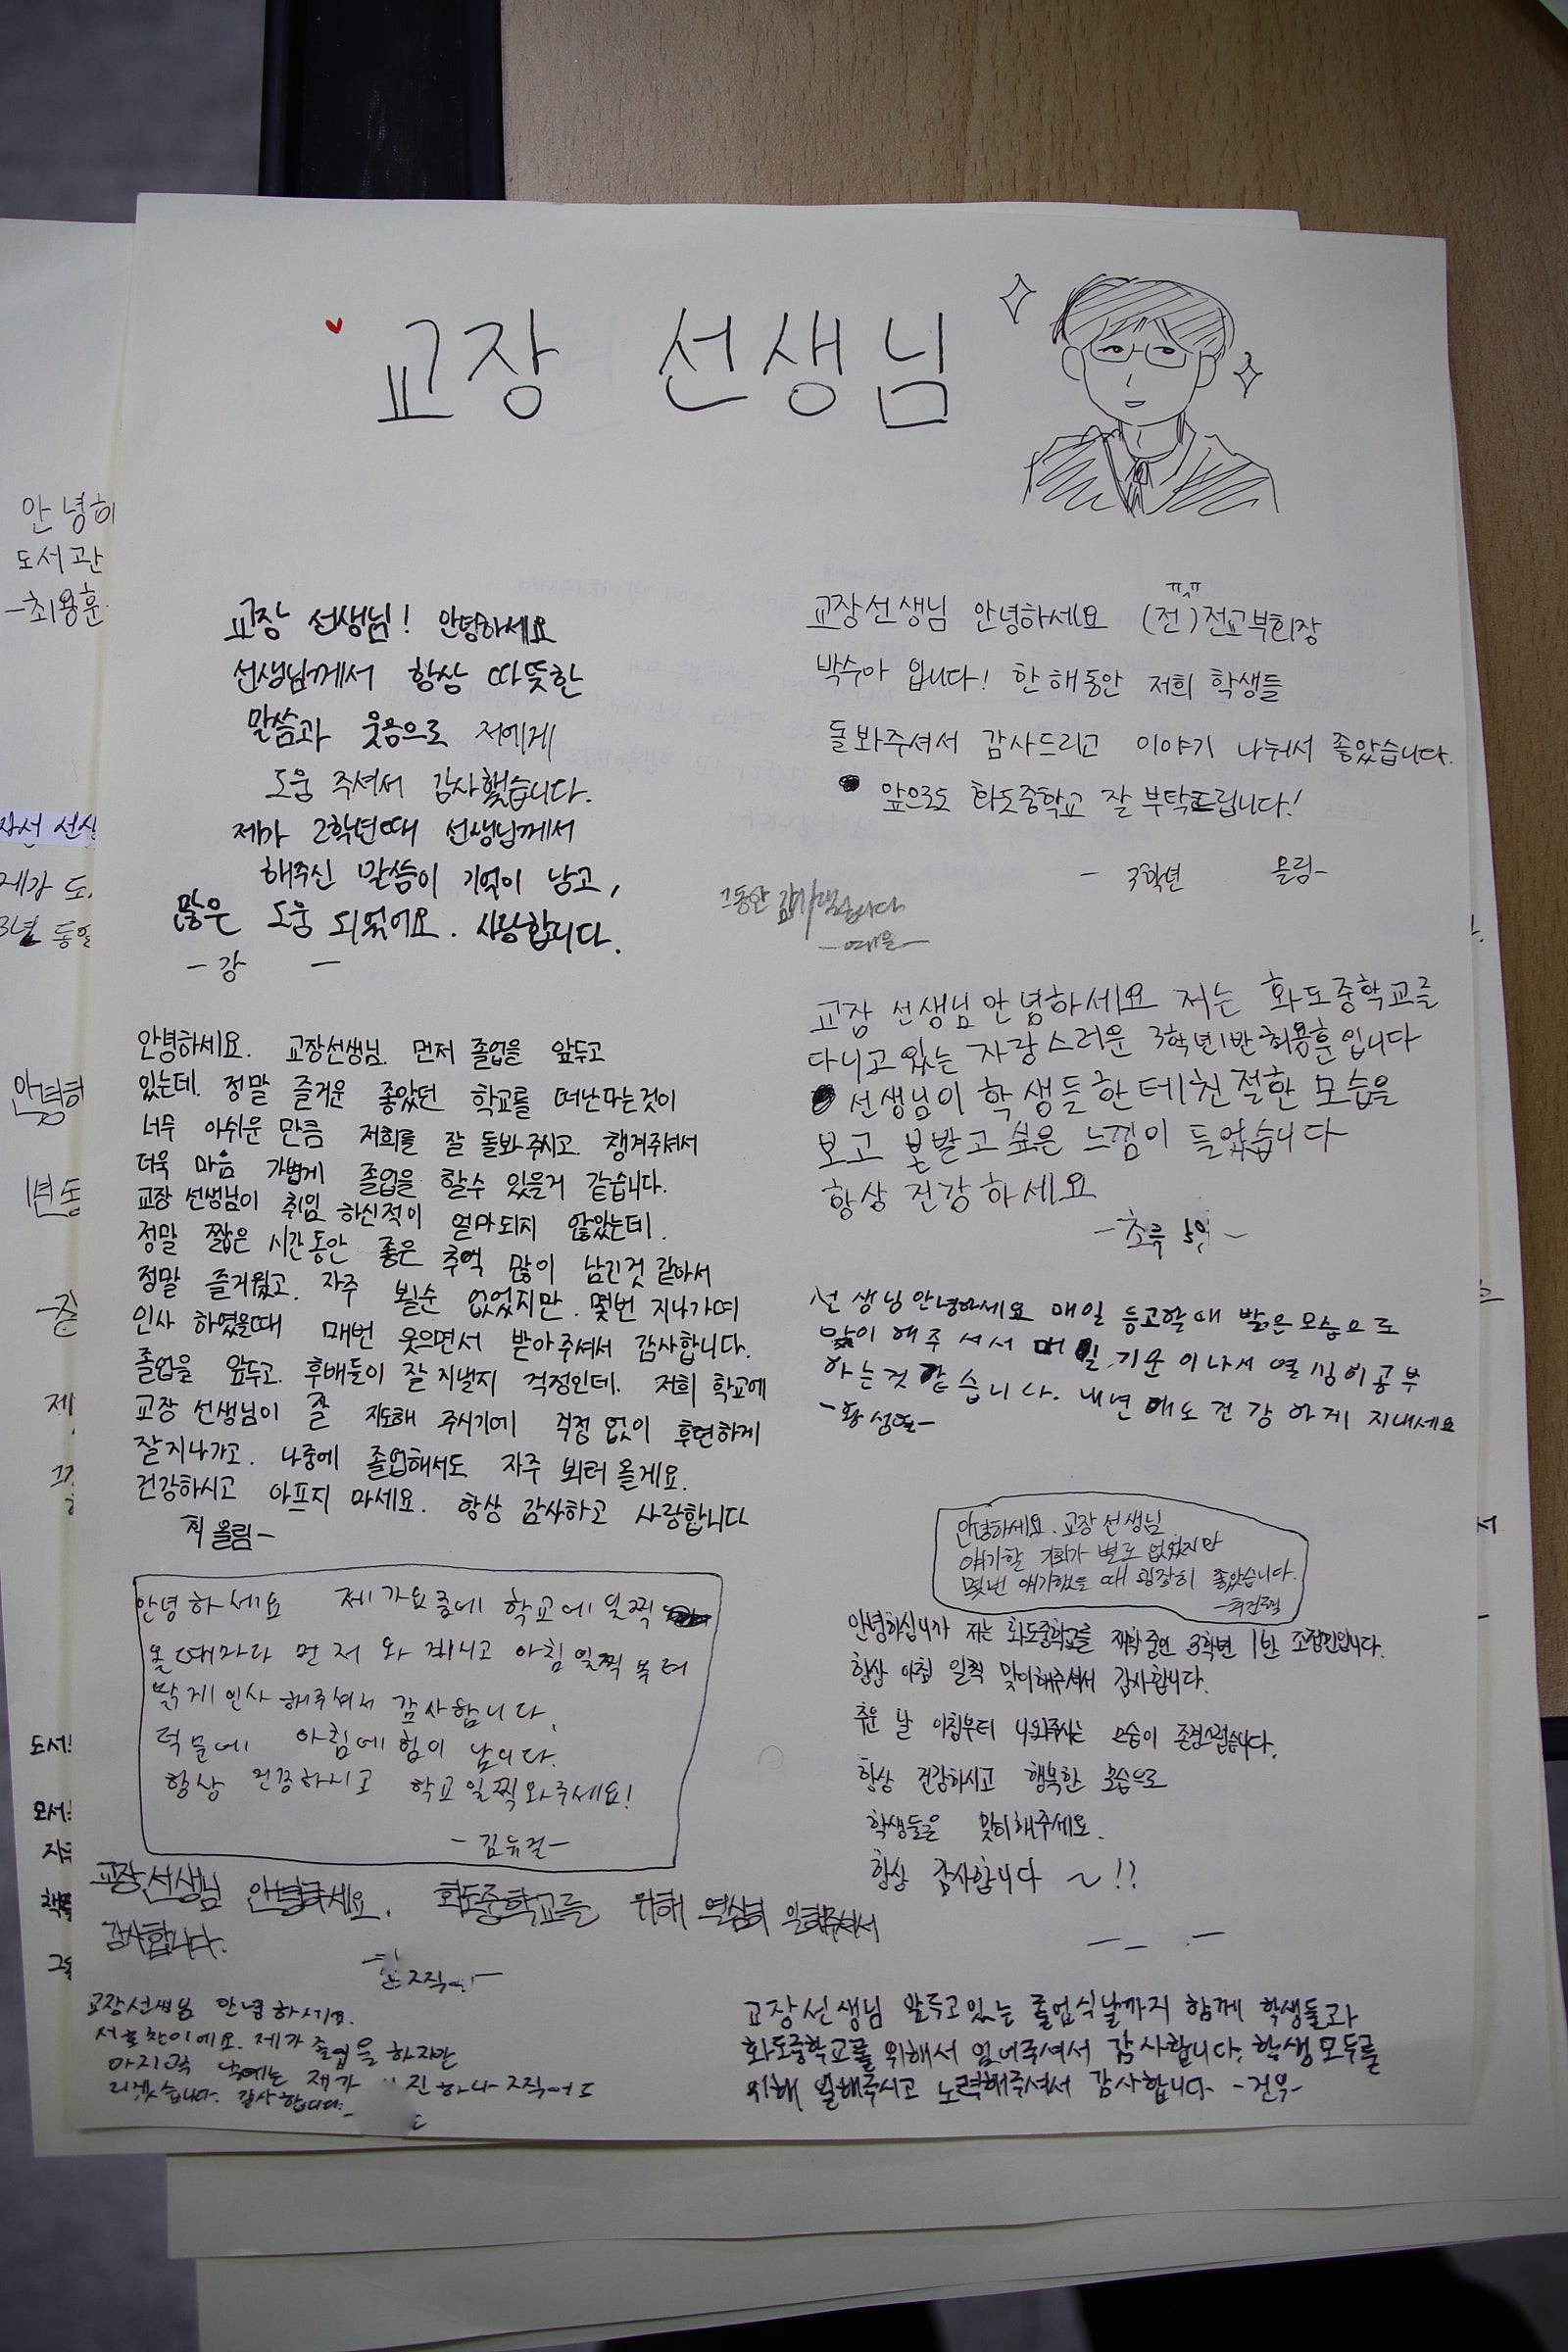 교장 선생님
교장 선생님! 안녕하세요
선생님께서 항상 따뜻한
말씀과 웃음으로 저에게
도움 주셔서 감사했습니다.
제가 2학년때 선생님께서
해주신 말씀이 기억이 남고,
많은 도움 되었어요. 사랑합니다.
-강 -
교장선생님 안녕하세요 (전)전교부회장
ㅠㅅㅠ
박수아 입니다! 한 해동안 저희 학생들
돌봐주셔서 감사드리고 이야기 나눠서 좋았습니다.
앞으로도 화도중학교 잘 부탁드립니다!
- 3학년 올림-
그동안 감사했습니다
안녕하세요. 교장선생님. 먼저 졸업을 앞두고
있는데. 정말 즐거운 좋았던 학교를 떠난다는것이
너무 아쉬운 만큼 저희를 잘 돌봐주시고. 챙겨주셔서
더욱 마음 가볍게 졸업을 할수 있을거 같습니다.
교장 선생님이 취임 하신적이 얼마되지 않았는데.
정말 짧은 시간동안 좋은 추억 많이 남긴것 같아서
정말 즐거웠고. 자주 뵐순 없었지만. 몇번 지나가며
인사 하였을때 매번 웃으면서 받아주셔서 감사합니다.
졸업을 앞두고. 후배들이 잘 지낼지 걱정인데. 저희 학교에
교장 선생님이 잘 지도해 주시기에 걱정 없이 후련하게
잘지나가고. 나중에 졸업해서도 자주 뵈러 올게요.
건강하시고 아프지 마세요. 항상 감사하고 사랑합니다
올림-
교장 선생님 안녕하세요 저는 화도중학교를
다니고 있는 자랑스러운 3학년1반 최용훈입니다
선생님이 학생들한테 친절한 모습을
보고 본받고 싶은 느낌이 들었습니다
항상 건강하세요
선생님 안녕하세요 매일 등교할때 밝은모습으로
맞이해주셔서 매일 기운이나서 열심히공부
하는것 같습니다. 내년에도 건강하게 지내세요
안녕하세요. 교장 선생님
얘기할 기회가 별로 없었지만
몇번 얘기했을 때 굉장히 좋았습니다.
안녕하세요 제가요즘에 학교에 일찍
올때마다 먼저 와 계시고 아침일찍부터
밝게인사해주셔서 감사합니다.
덕분에 아침에 힘이 납니다.
항상 건강하시고 학교일찍와주세요!
안녕하십니까 저는 화도중학교를 재학중인 3학년 1반 조정민입니다.
항상 아침 일찍 맞이해주셔서 감사합니다.
추운 날 아침부터 나와주시는 모습이 존경스럽습니다.
항상 건강하시고 행복한 모습으로
학생들을 맞이해주세요.
항상 감사합니다 ~!!
교장선생님 안녕하세요. 화도중학교를 위해 열심히 일해주셔서
감사합니다.
교장선생님 안녕하세요.
제가 졸업을 하지만
제가
감사합니다.
교장선생님 앞두고있는 졸업식날까지 함께 학생들과
화도중학교를 위해서 힘써주셔서 감사합니다. 학생 모두를
위해 일해주시고 노력해주셔서 감사합니다 -건우-
안녕하
도서관
-최용훈
제가 도
3년 동안
안녕하